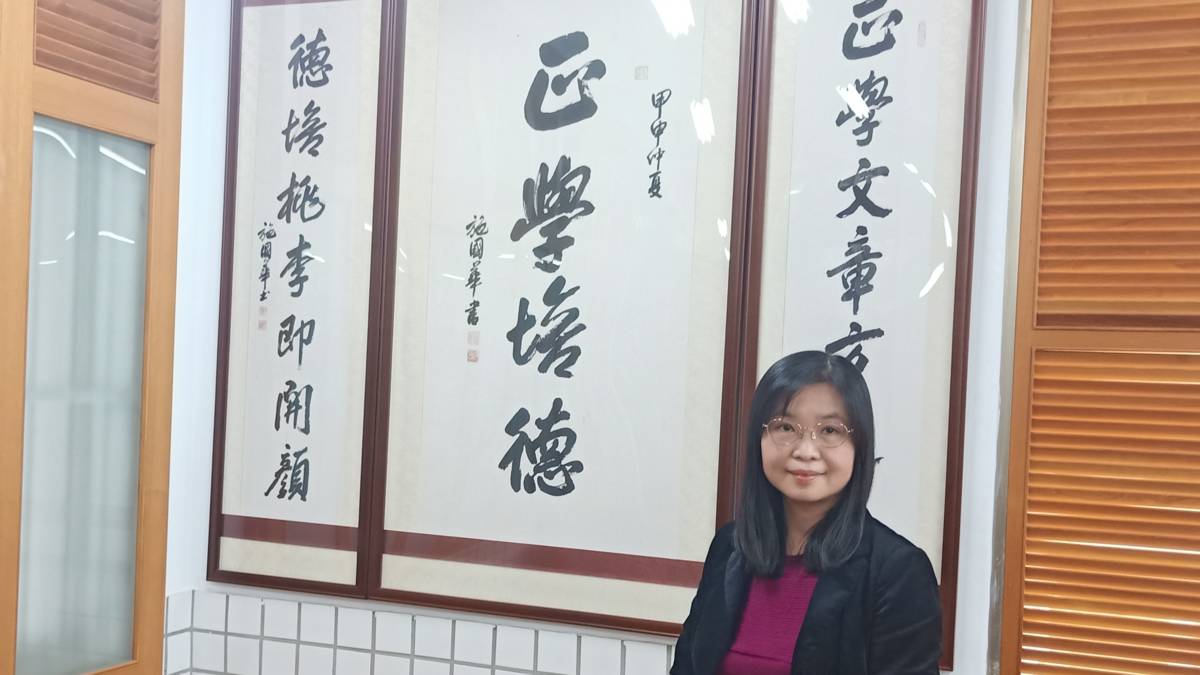 正學文章
甲申仲夏
正學培德
施國華書
德培桃李即開顏
施國華